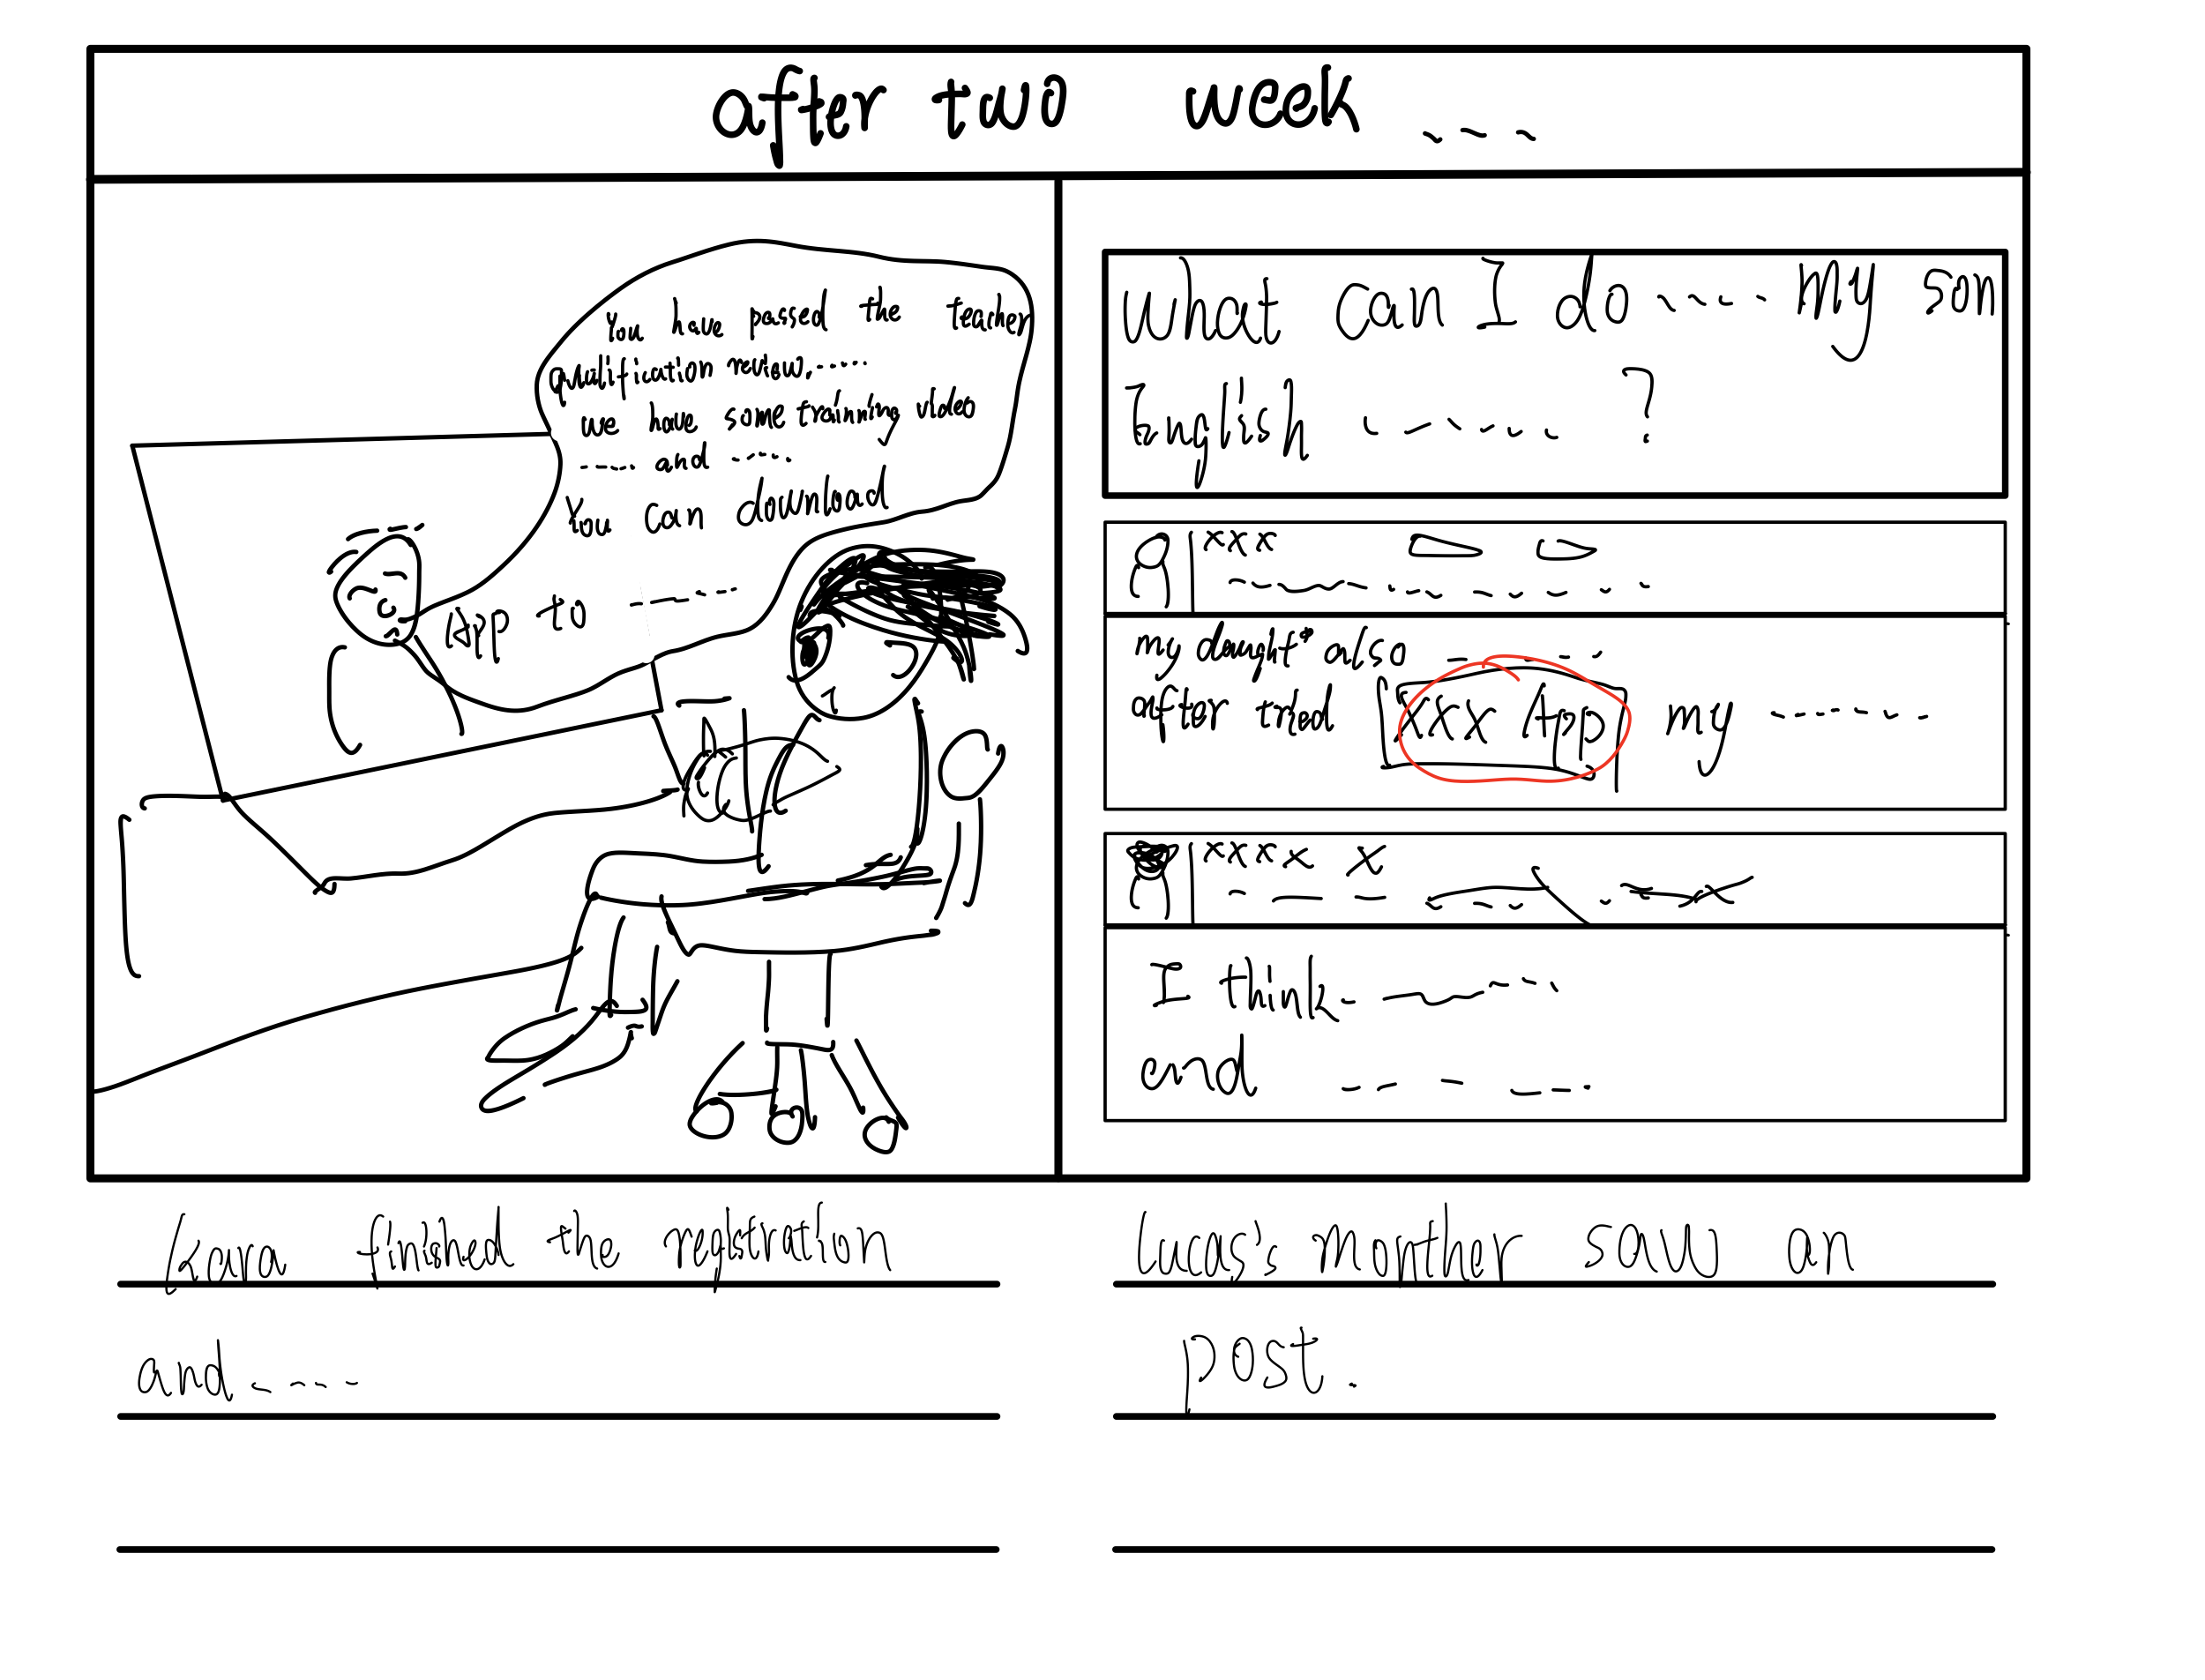 after two week ...
You have passed the teacher
qualification review......
we have some training video
.... and ....
You can download
App to ....
What can I do .... My son
English .... ?
xxx
my daught* also ....
after tred XXX App my ....
xxxxx x
I think ....
end ....
keana finished the registration
and ....
Lucas's mother saw an
post.